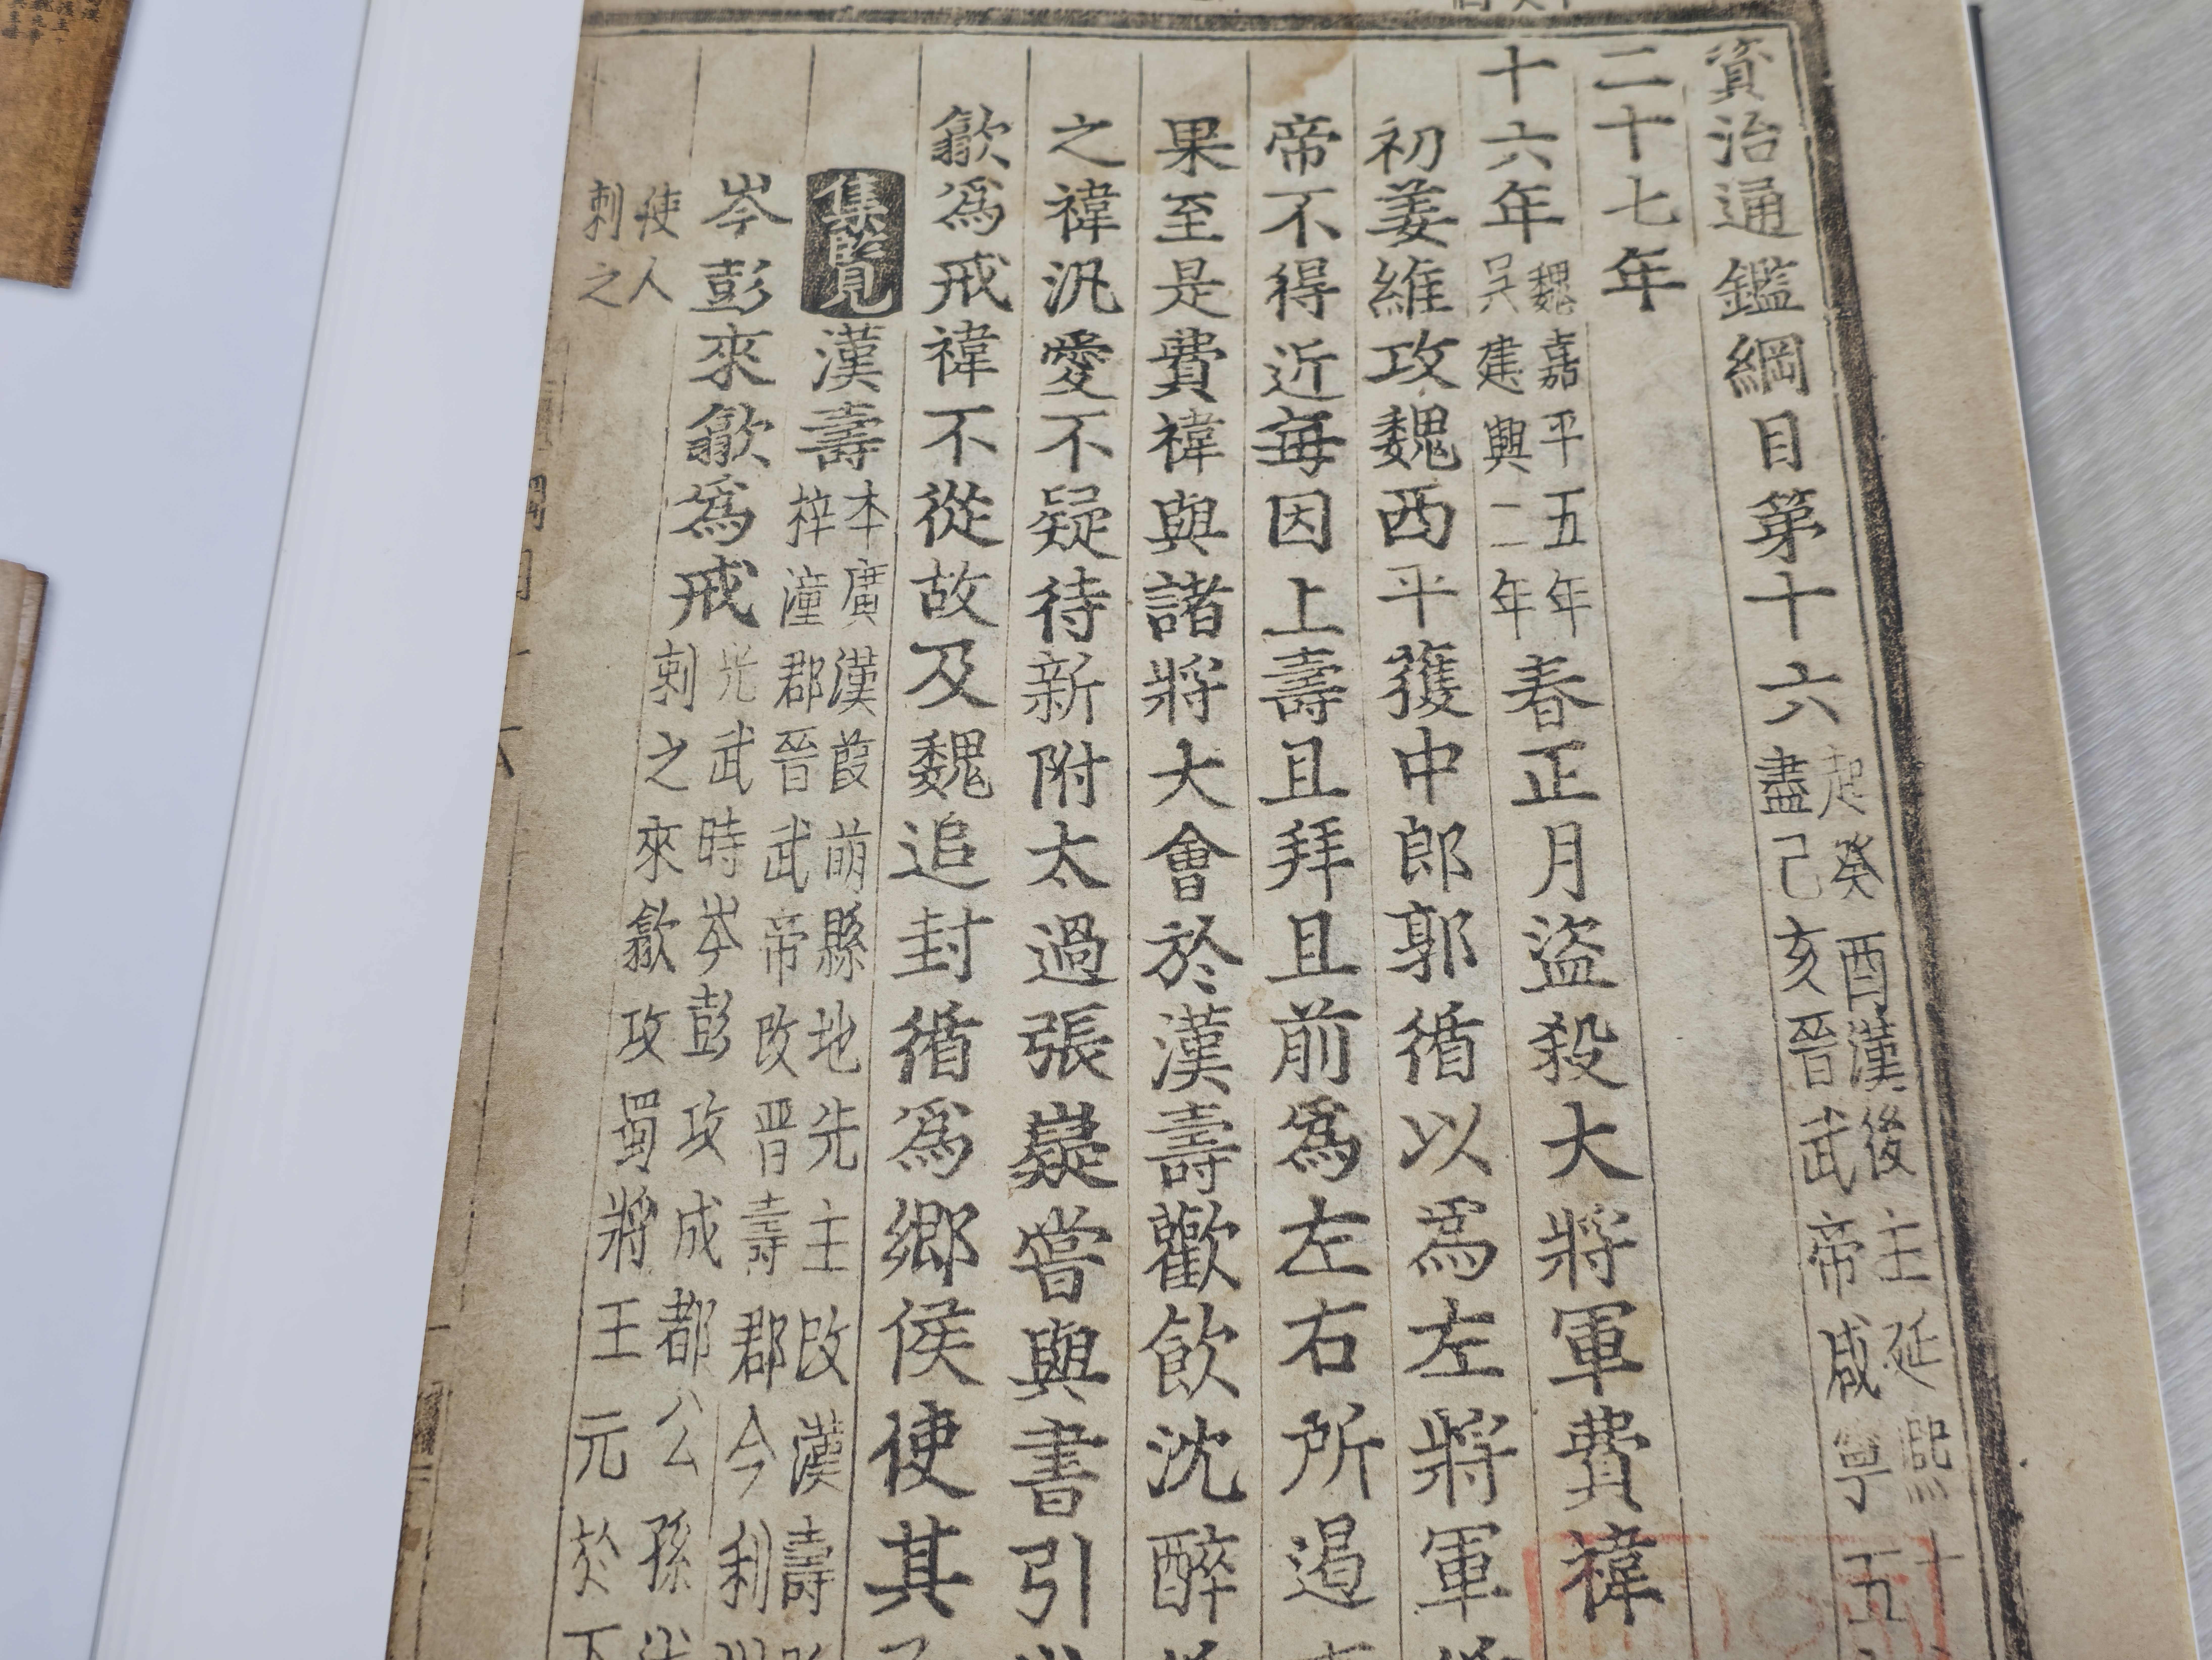 資治通鑑綱目第十六
起癸酉漢後主延熙十
盡己亥晉武帝咸寧五
二十七年
十六年
魏嘉平五年
吳建興二年
春正月盜殺大將軍費禕
初姜維攻魏西平獲中郎郭循以爲左將軍
帝不得近每因上壽且拜且前爲左右所遏
果至是費禕與諸將大會於漢壽歡飲沈醉
之禕汎愛不疑待新附太過張嶷嘗與書引
歙爲戒禕不從故及魏追封循爲鄉侯使其
集覽
漢壽
本廣漢葭萌縣地先主改漢壽
梓潼郡晉武帝改晋壽郡今利
岑彭來歙爲戒
光武時岑彭攻成都公孫
刺之來歙攻蜀將王元於下
使人
刺之